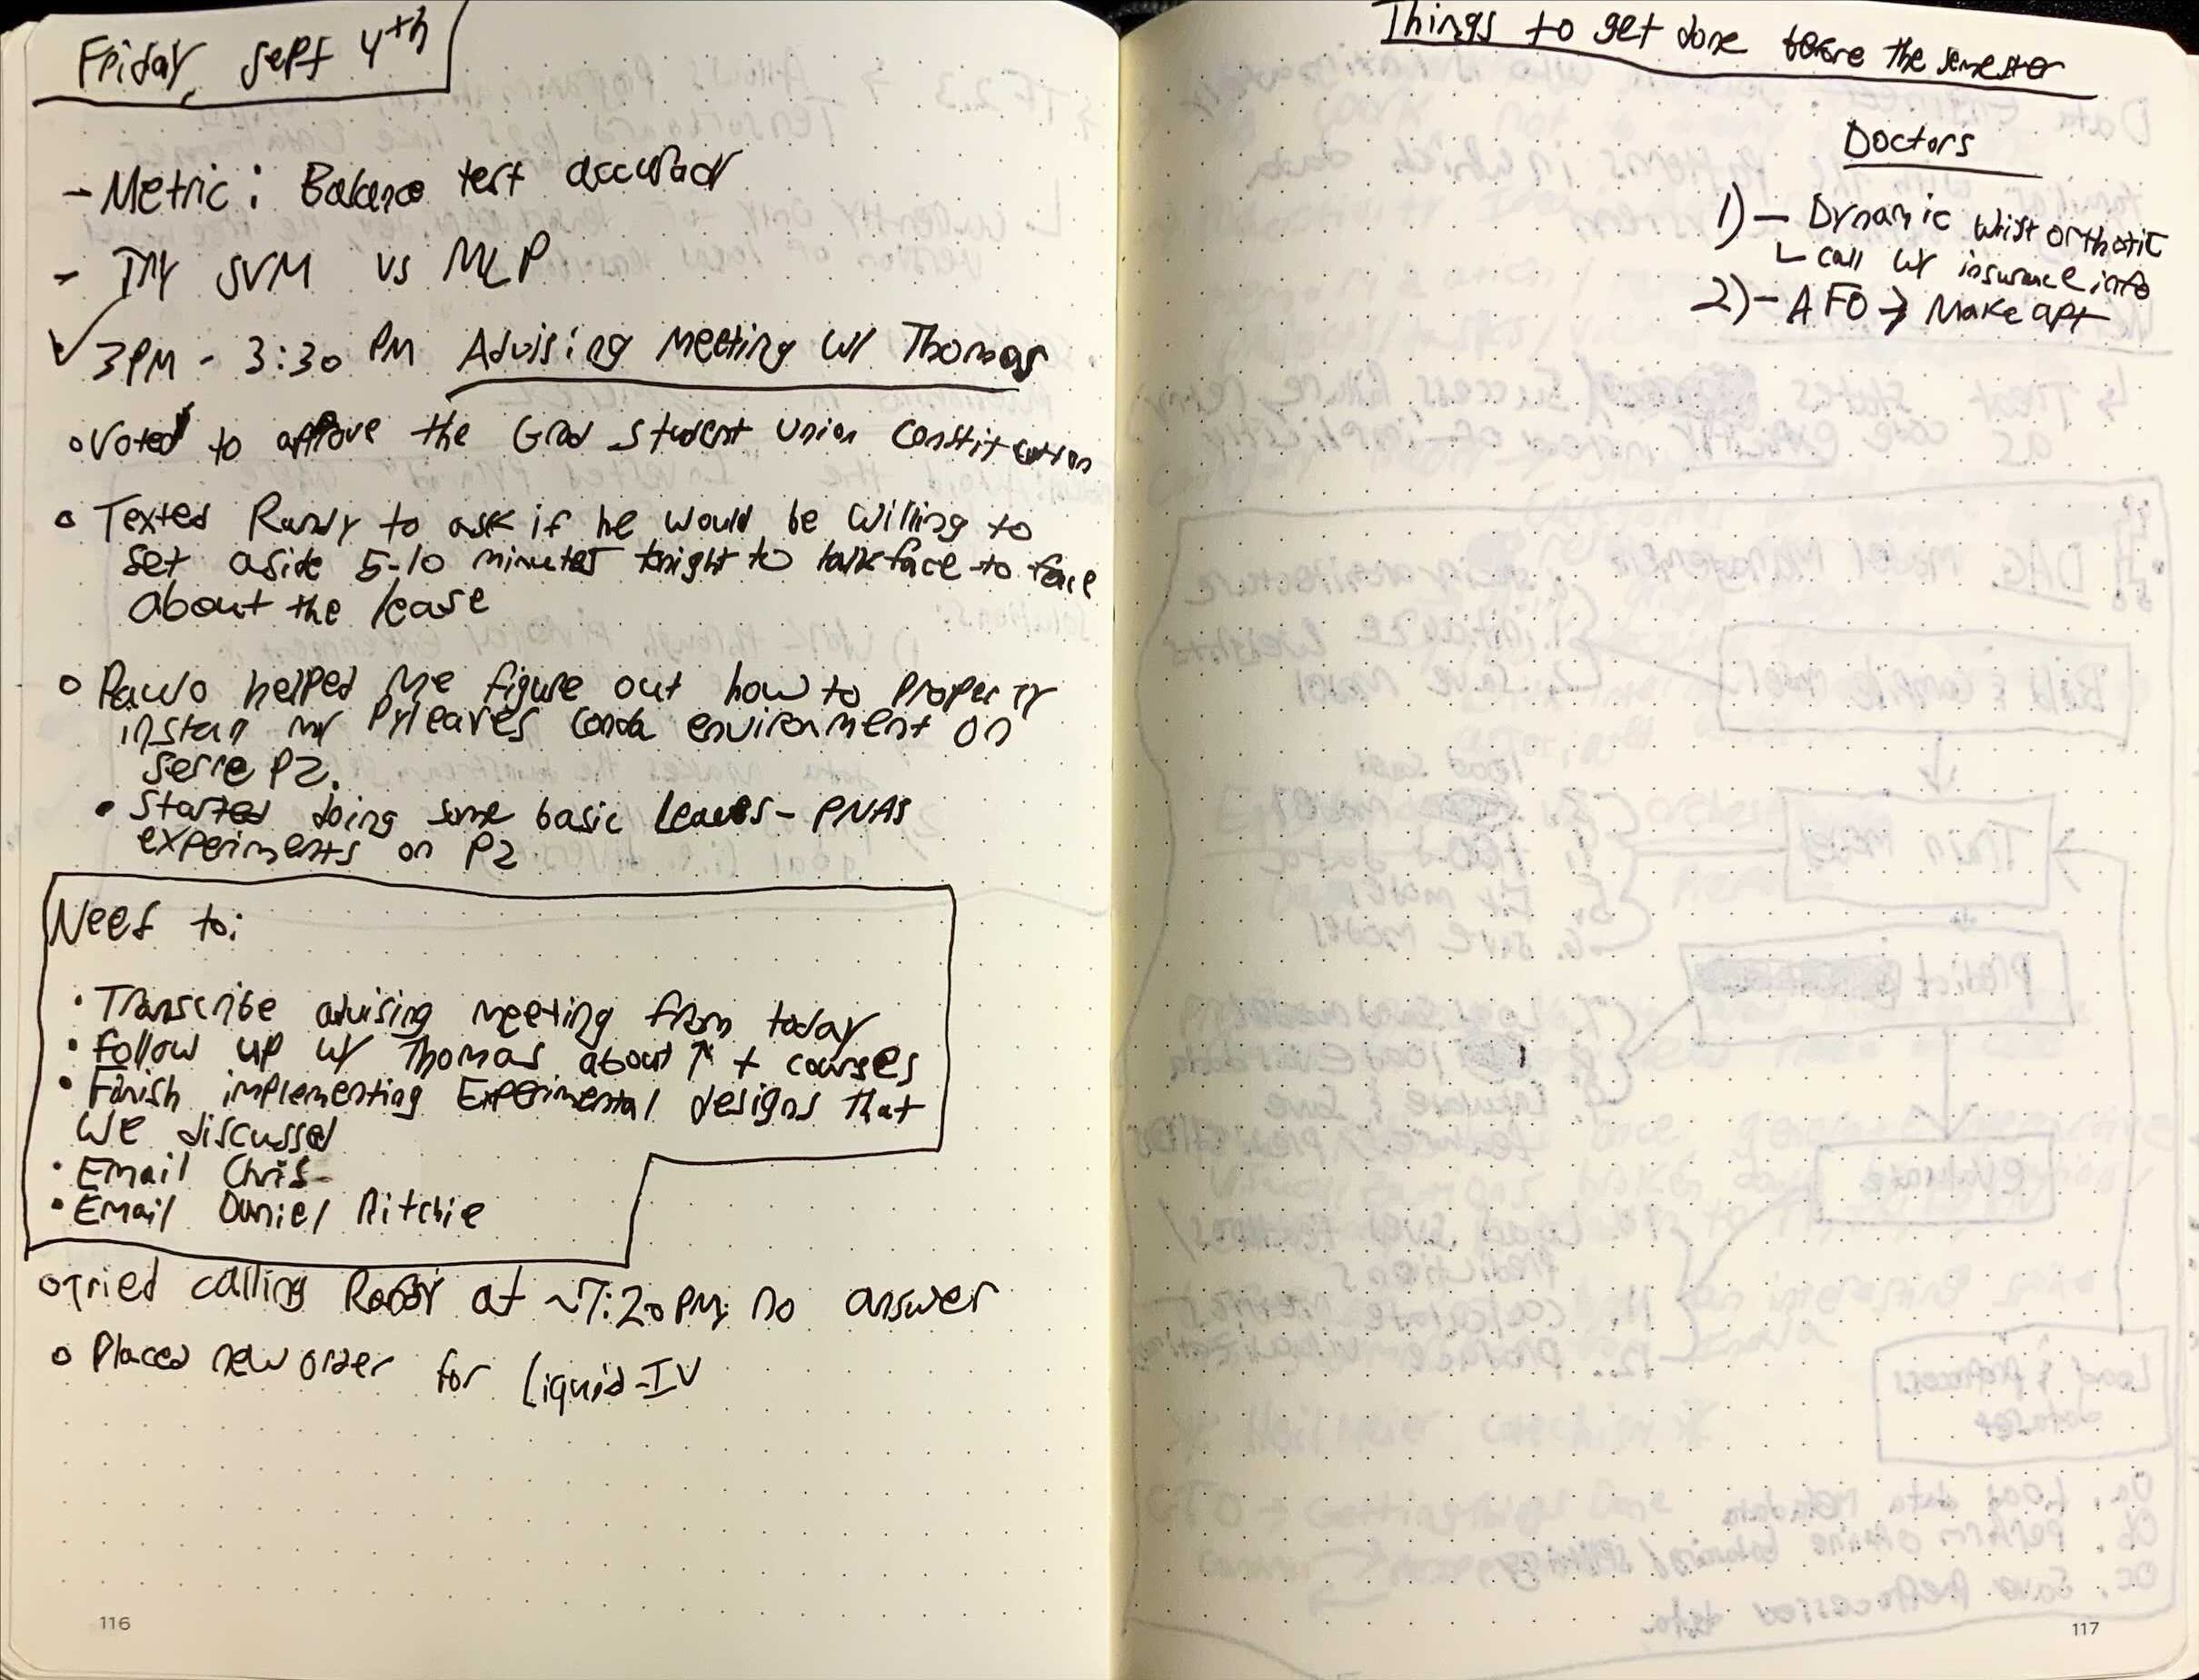 Friday, Sept 4th
- Metric: Balance test accuracy
- Try SVM vs MLP
✓ 3PM - 3:30 PM Advising Meeting w/ Thomas
o Voted to approve the Grad Student Union Constitution
o Texted Randy to ask if he would be willing to
set aside 5-10 minutes tonight to talk face-to face
about the lease
o Paulo helped me figure out how to properly
install my Pyleaves conda environment on
Serre P2.
• Started doing some basic Leaves-PNAS
experiments on P2
Need to:
• Transcribe advising meeting from today
• Follow up w/ Thomas about ↑ + courses
• Finish implementing Experimental designs that
we discussed
• Email Chris
• Email Daniel Ritchie
o Tried calling Randy at ~7:20 PM; no answer
o Placed new order for Liquid-IV
116
Things to get done before the semester
Doctors
1) - Dynamic Wrist orthotic
└ call w/ insurance info
2) - AFO → Make apt
117